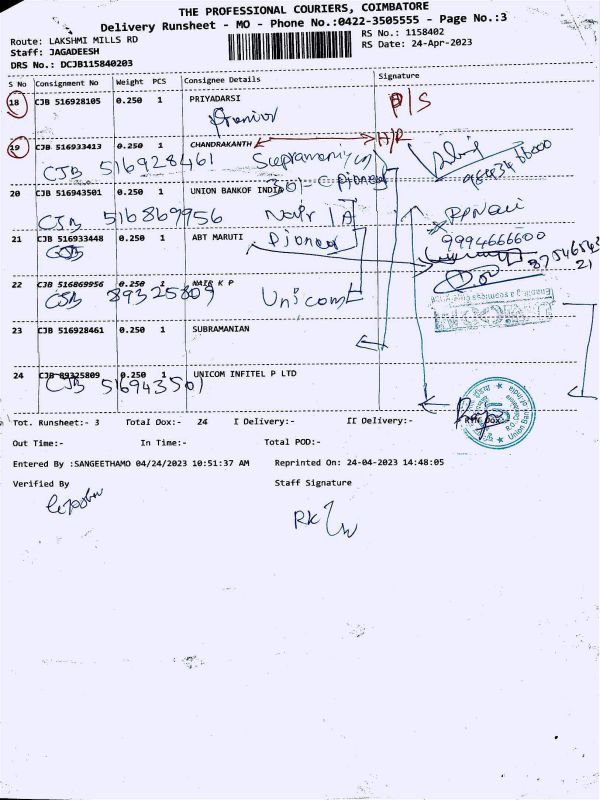 THE PROFESSIONAL COURIERS, COIMBATORE
Delivery Runsheet - MO - Phone No.:0422-3505555 - Page No.:3
Route: LAKSHMI MILLS RD
RS No.: 1158402
Staff: JAGADEESH
RS Date: 24-Apr-2023
DRS No.: DCJB115840203
S No Consignment No Weight PCS Consignee Details Signature
18 CJB 516928105 0.250 1 PRIYADARSI
P/S
19 CJB 516933413 0.250 1 CHANDRAKANTH
CJB 516928461
20 CJB 516943501 0.250 1 UNION BANKOF INDIA
301-C Pioneer
CJB 516869956 Nair
21 CJB 516933448 0.250 1 ABT MARUTI
Pioneer
9994666600
22 CJB 516869956 0.250 1 NAIR K P
CJB 89325809 Unicom
23 CJB 516928461 0.250 1 SUBRAMANIAN
24 CJB 89325809 0.250 1 UNICOM INFITEL P LTD
CJB 516943501
Tot. Runsheet:- 3 Total Dox:- 24 I Delivery:- II Delivery:-
Out Time:- In Time:- Total POD:-
Entered By :SANGEETHAMO 04/24/2023 10:51:37 AM Reprinted On: 24-04-2023 14:48:05
Verified By Staff Signature
RK